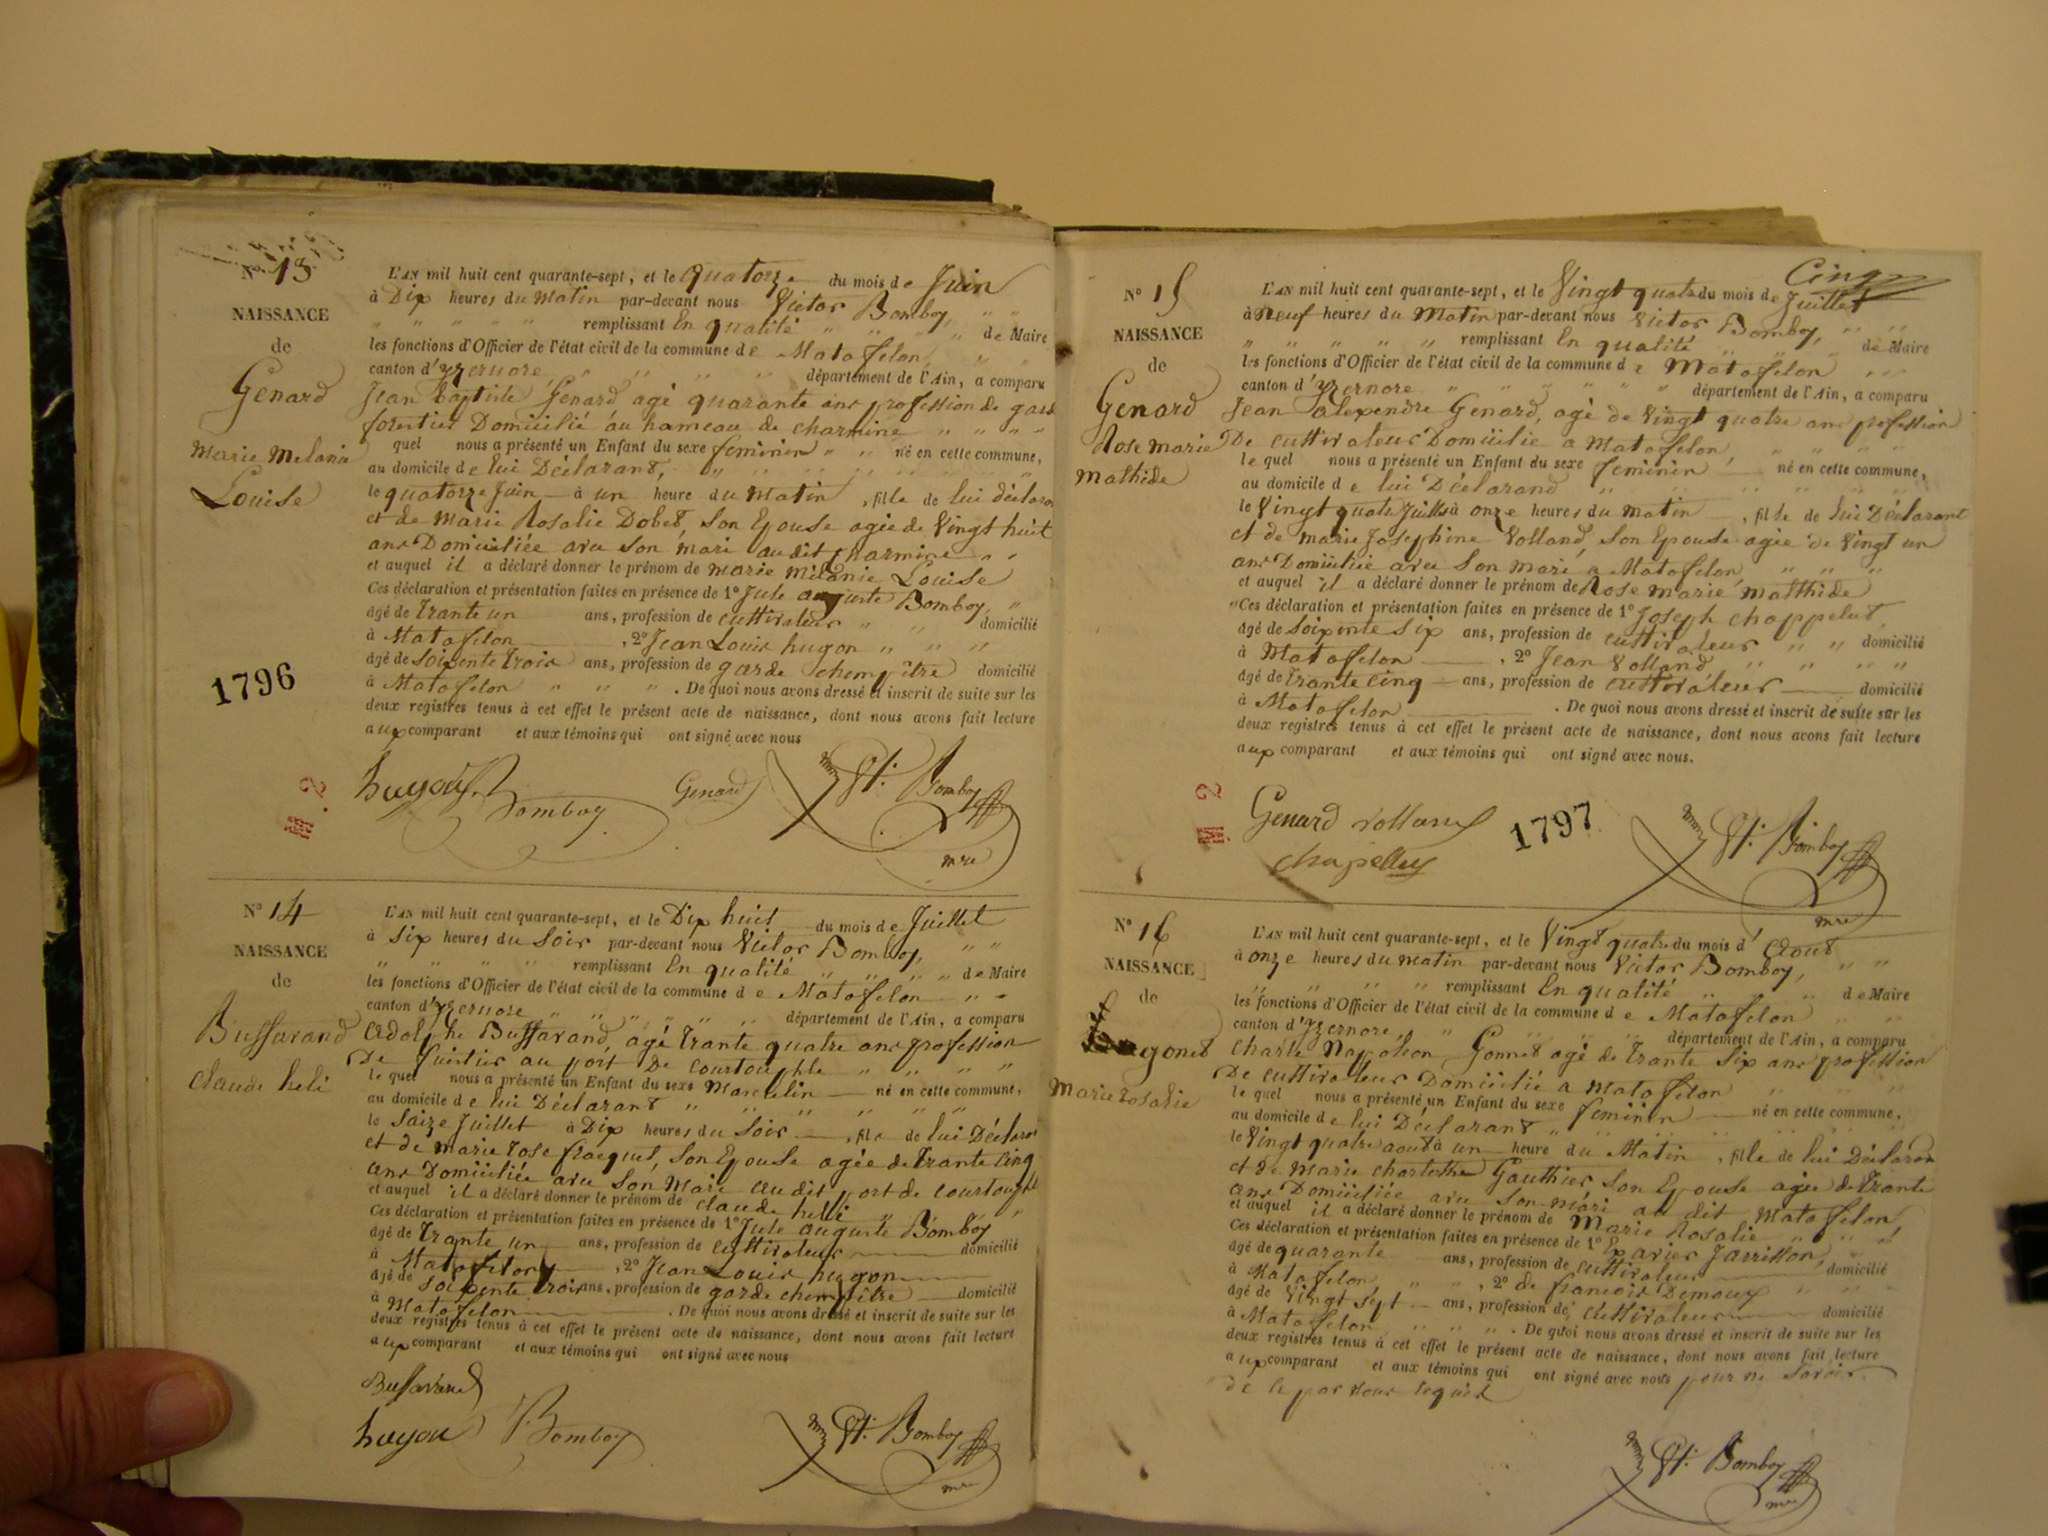 N° 13
NAISSANCE
de
Genard
marie melanie
Louise
1796
L'AN mil huit cent quarante-sept, et le quatorze du mois de Juin
à Dix heures du matin par-devant nous Victor Bomboy, " "
" " " " " remplissant En qualité " " " " " de Maire
les fonctions d'Officier de l'état civil de la commune de Matafelon " "
canton d'yzernore " " " " " département de l'Ain, a comparu
Jean baptiste Genard agé quarante ans profession de garde
forestier Domicilié au hameau de charmine " " " "
quel nous a présenté un Enfant du sexe feminin " " né en cette commune,
au domicile de lui Déclarant, " " " " " "
le quatorze Juin à un heure du matin, fille de lui déclarant
et de Marie Rosalie Dobet, Son Epouse agée de Vingt huit
ans Domiciliée avec Son mari audit charmine " "
et auquel il a déclaré donner le prénom de marie mélanie Louise
Ces déclaration et présentation faites en présence de 1° Jule auguste Bomboy, "
âgé de trante un ans, profession de cultivateur " " " domicilié
à Matafelon , 2° Jean Louis hugon " " "
âgé de Soixente trois ans, profession de garde champêtre domicilié
à Matafelon " " " . De quoi nous avons dressé et inscrit de suite sur les
deux registres tenus à cet effet le présent acte de naissance, dont nous avons fait lecture
aux comparant et aux témoins qui ont signé avec nous
hugon Bomboy Genard Vt. Bomboy
mre
N° 14
NAISSANCE
de
Bussarand
claude heli
L'AN mil huit cent quarante-sept, et le Dix huit du mois de Juillet
à Six heures du Soir par-devant nous Victor Bomboy, " "
" " " " remplissant En qualité " " " " de Maire
les fonctions d'Officier de l'état civil de la commune de Matafelon " "
canton d'yzernore " " " " " " département de l'Ain, a comparu
adolphe Bussarand, agé trante quatre ans profession
De au port De courtouphle " " " "
le quel nous a présenté un Enfant du sexe Masculin né en cette commune,
au domicile de lui Déclarant " " " " " "
le Saize Juillet à Dix heures du Soir , fils de lui Déclarant
et de marie rose Son Epouse agée de trante cinq
ans Domiciliée avec Son Mari audit port de courtouphle
et auquel il a déclaré donner le prénom de claude helli
Ces déclaration et présentation faites en présence de 1° Jule auguste Bomboy
âgé de trante un ans, profession de cultivateur domicilié
à Matafelon , 2° Jean Louis hugon
âgé de Soixente trois ans, profession de garde champêtre domicilié
à Matafelon . De quoi nous avons dressé et inscrit de suite sur les
deux registres tenus à cet effet le présent acte de naissance, dont nous avons fait lecture
aux comparant et aux témoins qui ont signé avec nous
Bussarand
hugon Bomboy Vt. Bomboy
mre
Cinq
N° 15
NAISSANCE
de
Genard
Rose marie
mathide
L'AN mil huit cent quarante-sept, et le Vingt quatre du mois de Juillet
à neuf heures du Matin par-devant nous Victor Bomboy, " "
" " " " " remplissant En qualité de Maire
les fonctions d'Officier de l'état civil de la commune de Matafelon " " "
canton d'yzernore " " " " " " département de l'Ain, a comparu
Jean alexendre Genard, agé de Vingt quatre ans profession
De cultivateur Domicilié a Matafelon, " " " "
le quel nous a présenté un Enfant du sexe feminin né en cette commune,
au domicile de lui Déclarand " " " " " "
le Vingt quatre Juillet à onze heures du matin , fille de lui Déclarant
et de marie Josephine Volland, Son Epouse agée de Vingt un
ans Domiciliée avec Son mari a Matafelon " " "
et auquel il a déclaré donner le prénom de Rose marie mathide
Ces déclaration et présentation faites en présence de 1° Joseph chappelut,
âgé de Soixente Six ans, profession de cultivateur " " domicilié
à Matafelon , 2° Jean Volland " " " "
âgé de trante cinq ans, profession de cultivateur domicilié
à Matafelon . De quoi nous avons dressé et inscrit de suite sur les
deux registres tenus à cet effet le présent acte de naissance, dont nous avons fait lecture
aux comparant et aux témoins qui ont signé avec nous.
Genard 1797 Vt. Bomboy
mre
N° 16
NAISSANCE
de
gonet
Marie rosalie
L'AN mil huit cent quarante-sept, et le Vingt quatre du mois d'aout
à onze heures du matin par-devant nous Victor Bomboy, " "
" " " " remplissant En qualité " " " de Maire
les fonctions d'Officier de l'état civil de la commune de Matafelon " "
canton d'yzernore " " " " département de l'Ain, a comparu
charle Napoléon Gonnet agé de trante Six ans profession
De cultivateur Domicilié a Matafelon " " "
le quel nous a présenté un Enfant du sexe feminin né en cette commune,
au domicile de lui Déclarant " " " " "
le Vingt quatre aout à un heure du Matin , fille de lui Déclarant
et de Marie Gauthier Son Epouse agée de trante
ans Domiciliée avec Son mari au dit Matafelon,
et auquel il a déclaré donner le prénom de Marie Rosalie " "
Ces déclaration et présentation faites en présence de 1° Exavier Jarrillon, "
âgé de quarante ans, profession de cultivateur domicilié
à Matafelon " " , 2° de francois Demoux " " "
âgé de Vingt Sept ans, profession de cultivateur domicilié
à Matafelon " " " . De quoi nous avons dressé et inscrit de suite sur les
deux registres tenus à cet effet le présent acte de naissance, dont nous avons fait lecture
aux comparant et aux témoins qui ont signé avec nous pour ne Savoir
de le par nous requis
Vt. Bomboy
mre